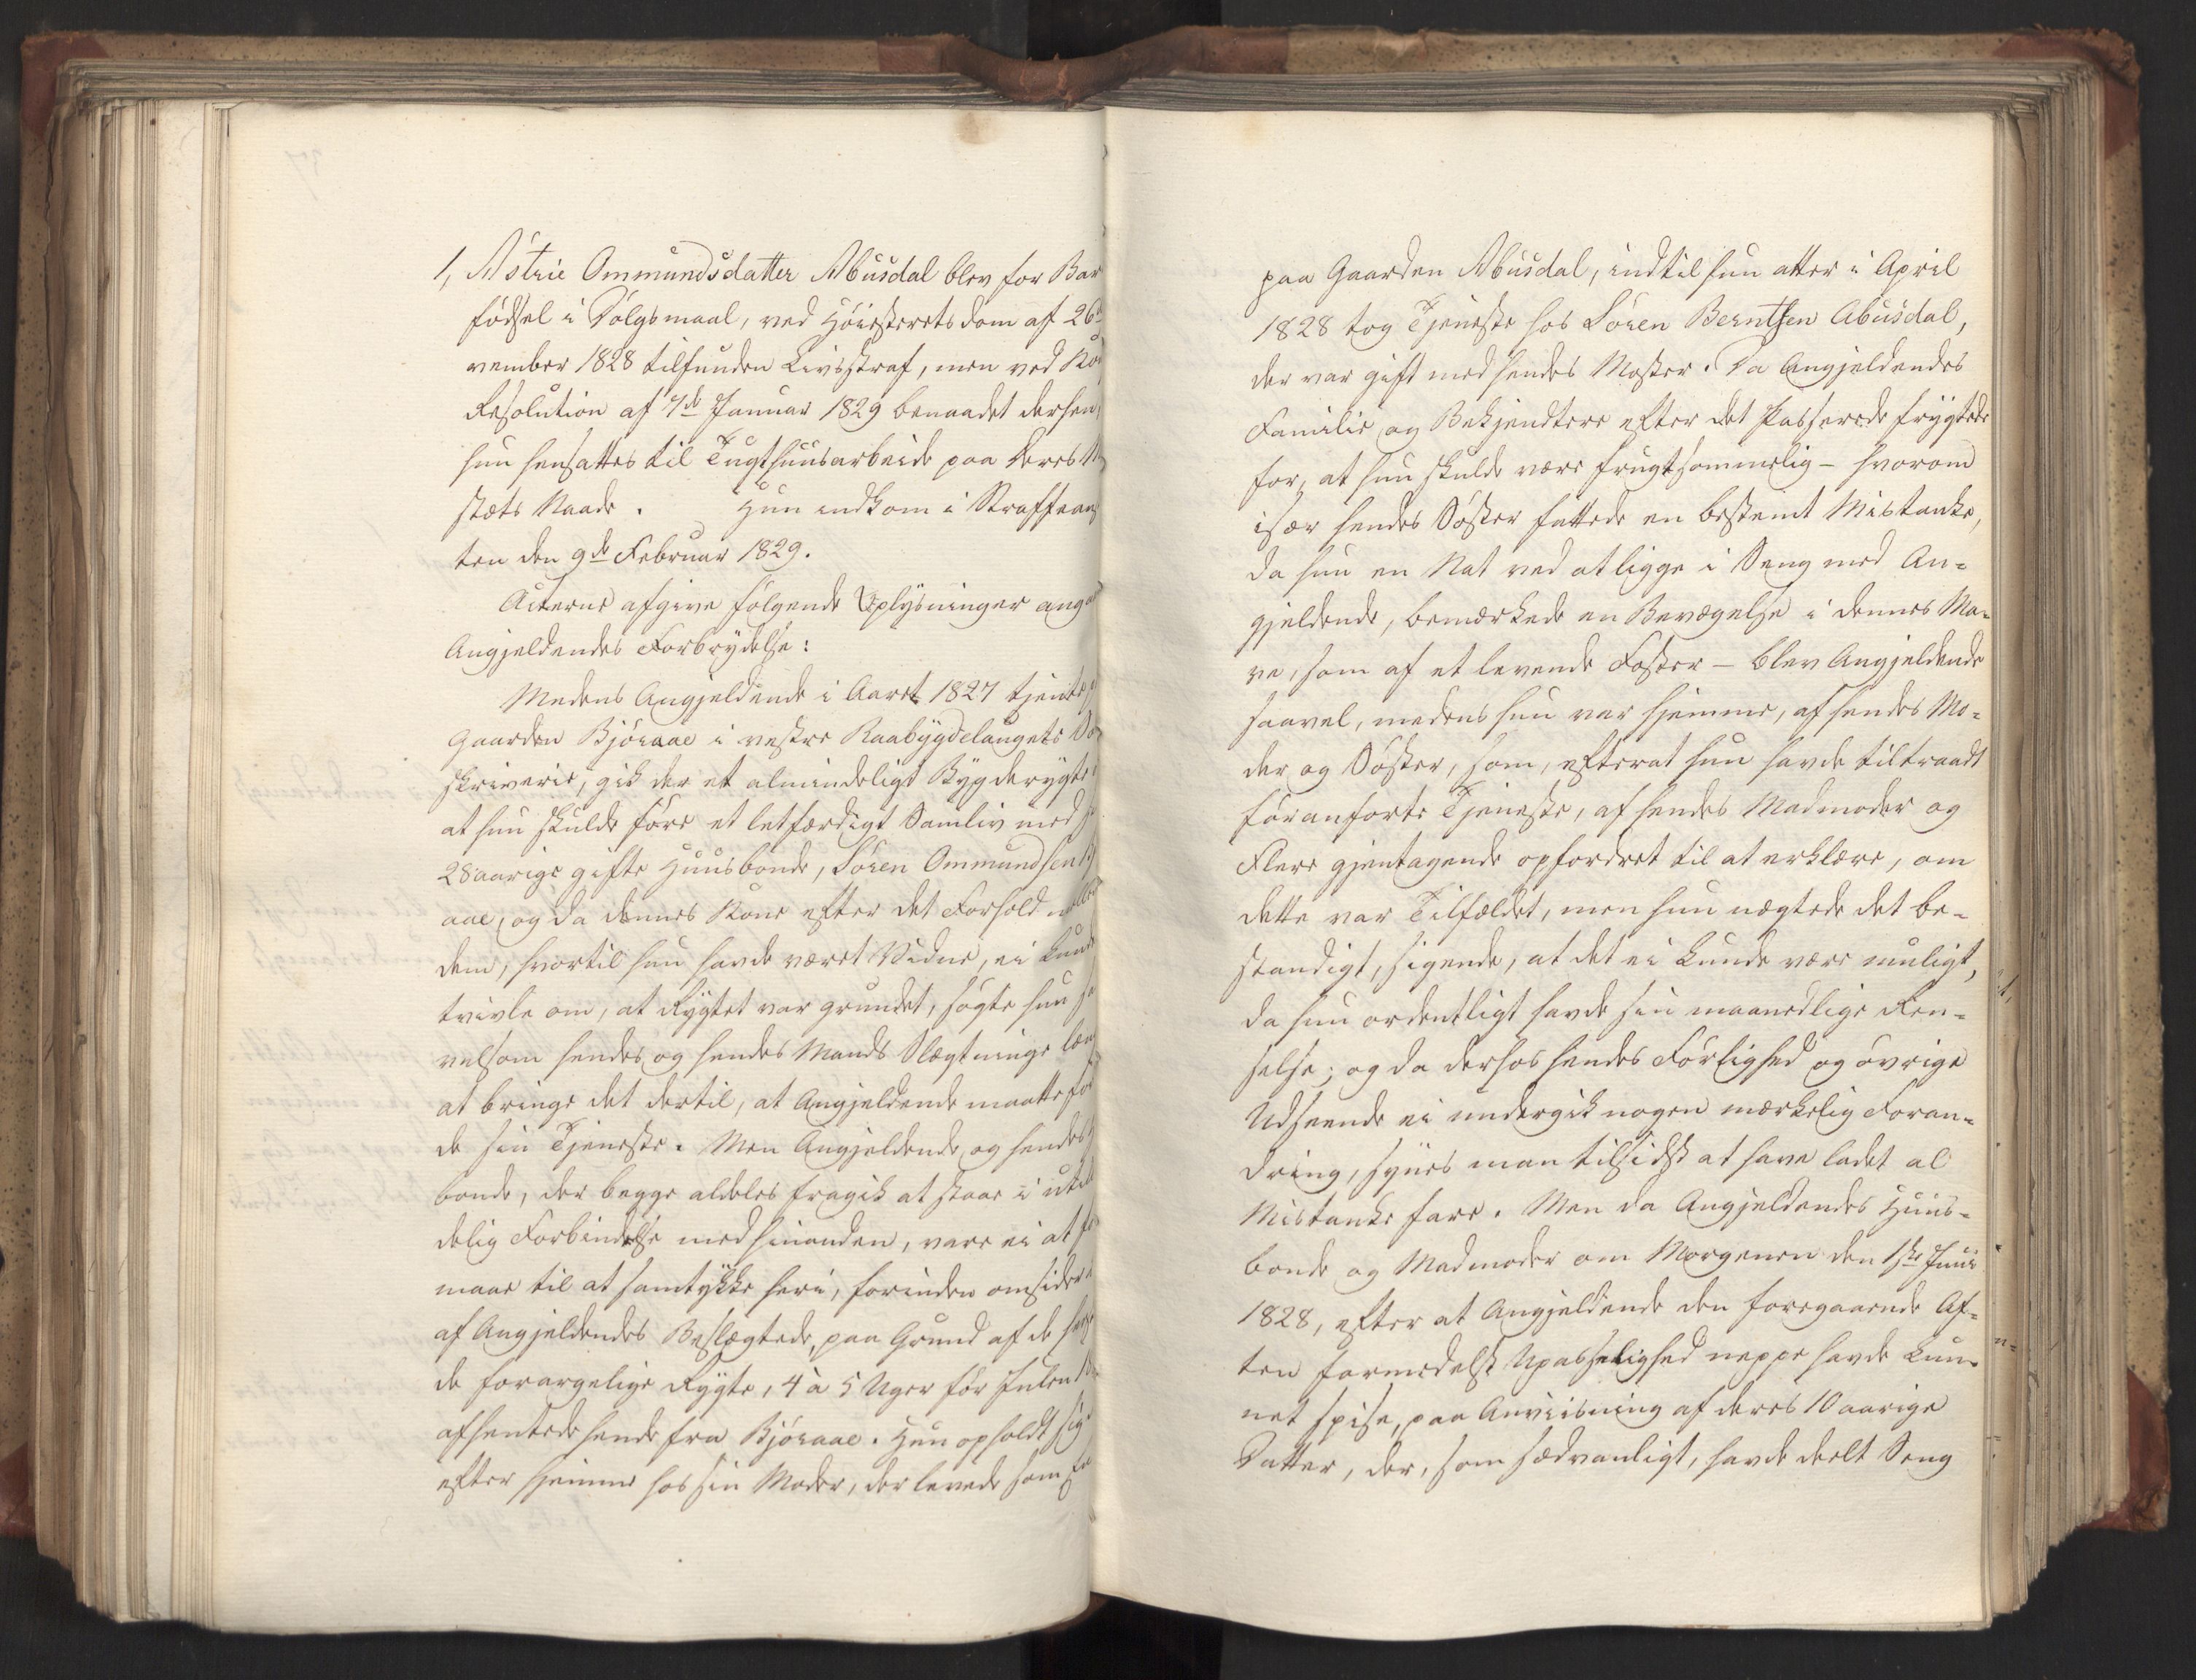 1, Astrie Ommundsdatter Abusdal blev for Bar
fødsel i Dølgsmaal, ved Høiesterets dom af 26
vember 1828 tilfunden Livsstraf, men ved Ko
Resolution af 7de Januar 1829 benaadet derhen,
hun hensattes til Tugthuusarbeide paa Deres M
stæts Naade. Hun indkom i Straffean
ten den 9de Februar 1829.
Acterne afgive følgende Oplysninger ang
Angjeldendes Forbrydelse:
Medens Angjeldende i Aaret 1827 tjente p
Gaarden Bjóraae i vestre Raabygdelaugets So
skriverie, gik der et almindeligt Bygderygte,
at hun skulde føre et letfærdigt Samliv med
28aarige gifte Huusbonde, Sóren Ommundsen Bj
aae, og da dennes Kone efter det Forhold mellem
dem, hvortil hun havde været Vidne, ei kunde
tvivle om, at Rygtet var grundet, søgte hun sa
velsom hendes og hendes Mands Slægtninge læn
at bringe det dertil, at Angjeldende maatte for
de sin Tjeneste. Men Angjeldende og hendes
bonde, der begge aldeles fragik at staae i util
delig Forbindelse med hinanden, vare ei at for
maae til at samtykke heri, forinden omsider
af Angjeldendes Beslægtede, paa Grund af de
de forargelige Rygte, 4 à 5 Uger før Julen
afhentede hende fra Bjóraae. Hun opholdt sig
efter hjemme hos sin Moder, der levede som
paa Gaarden Abusdal, indtil hun atter i April
1828 tog Tjeneste hos Sóren Berntsen Abusdal,
der var gift med hendes Moster. Da Angjeldendes
Familie og Bekjendtere efter det Passerede frygtede
for, at hun skulde være frugtsommelig – hvorom
især hendes Søster fattede en bestemt Mistanke,
da hun en Nat ved at ligge i Seng med An-
gjeldende, bemærkede en Bevægelse i dennes Ma-
ve, som af et levende Foster – blev Angjeldende
saavel, medens hun var hjemme, af hendes Mo-
der og Søster, som, efterat hun havde tiltraadt
føranførte Tjeneste, af hendes Madmoder og
Flere gjentagende opfordret til at erklære, om
dette var Tilfældet, men hun nægtede det be-
standigt, sigende, at det ei kunde være muligt,
da hun ordentligt havde sin maanedlige Ren-
selse; og da derhos hendes Førlighed og øvrige
Udseende ei undergik nogen mærkelig Foran-
dring, synes man tilsidst at have ladet al
Mistanke fare. Men da Angjeldendes Huus-
bonde og Madmoder om Morgenen den 1ste Juni
1828, efter at Angjeldende den foregaaende Af-
ten formedelst Upasselighed neppe havde kun-
net spise, paa Anviisning af deres 10aarige
Datter, der, som sædvanligt, havde deelt Seng